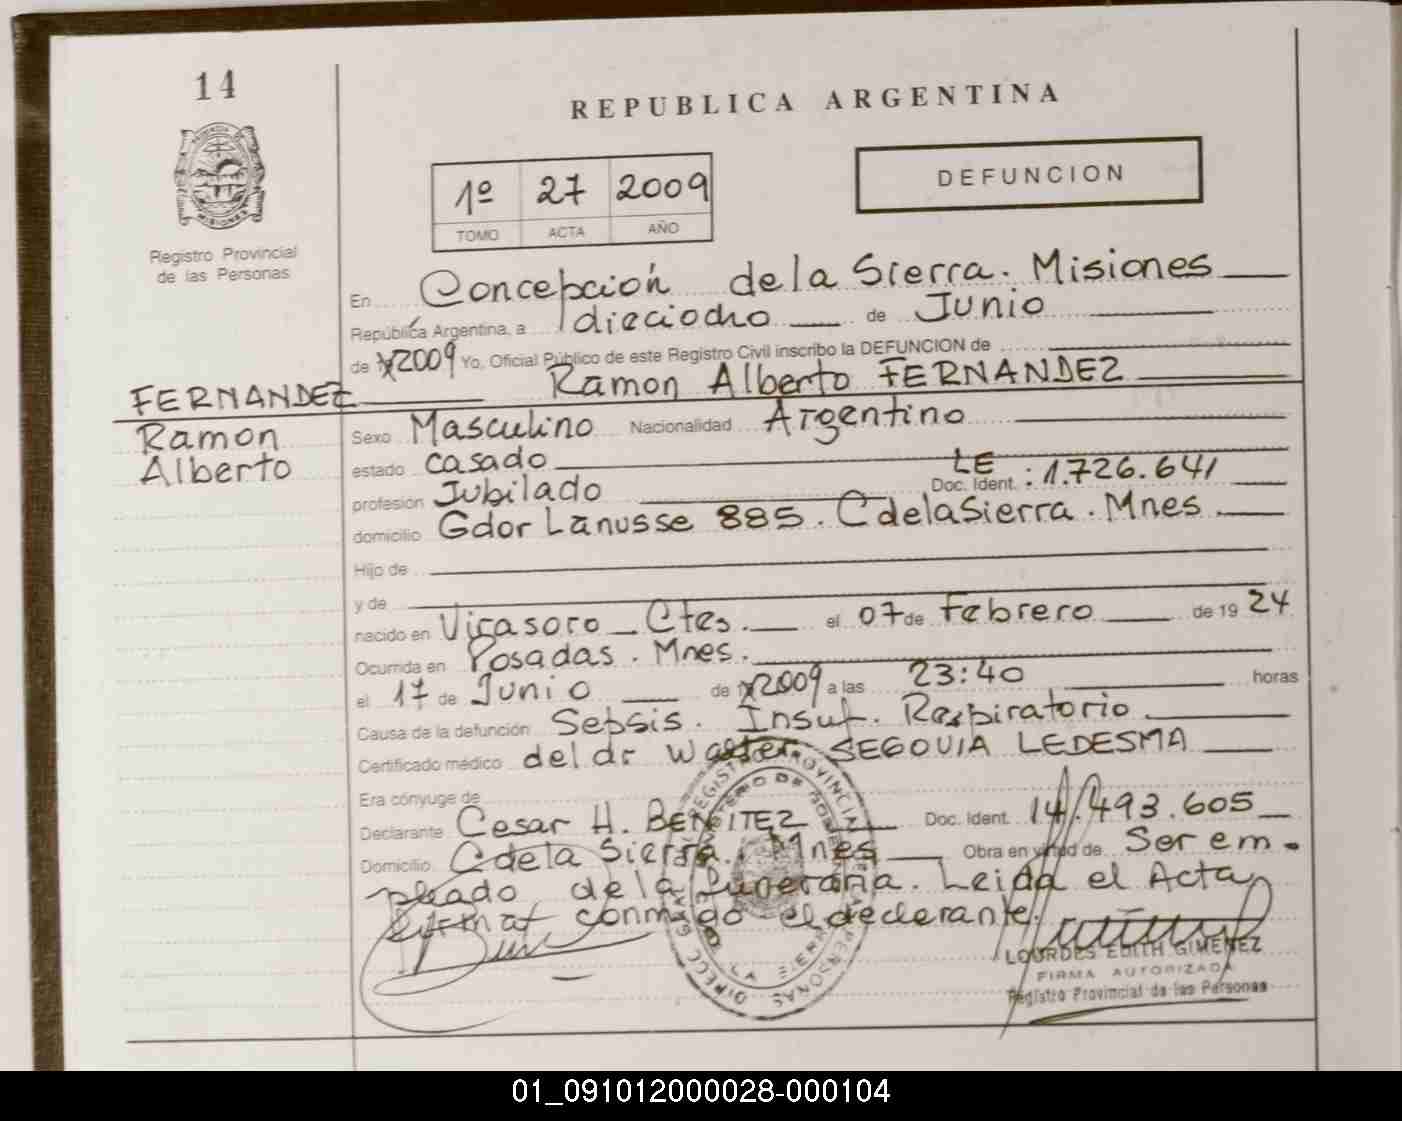 14
REPUBLICA ARGENTINA
MISIONES
Registro Provincial
de las Personas
1º 27 2009
TOMO ACTA AÑO
DEFUNCION
En Concepción de la Sierra. Misiones
República Argentina, a dieciocho de Junio
de 2009 Yo, Oficial Público de este Registro Civil inscribo la DEFUNCION de
Ramon Alberto FERNANDEZ
FERNANDEZ
Ramon
Alberto
Sexo Masculino Nacionalidad Argentino
estado casado
profesión Jubilado Doc. Ident. LE : 1.726.641
domicilio Gdor Lanusse 885. C de la Sierra. Mnes.
Hijo de
y de
nacido en Virasoro _ Ctes. el 07 de Febrero de 1924
Ocurrida en Posadas. Mnes.
el 17 de Junio de 2009 a las 23:40 horas
Causa de la defunción Sepsis. Insuf. Respiratorio
Certificado médico del dr Walter SEGOVIA LEDESMA
Era cónyuge de
Declarante Cesar H. BENITEZ Doc. Ident. 14.493.605
Domicilio C de la Sierra. Mnes Obra en virtud de Ser em-
pleado de la funeraria. Leida el Acta
firmat conmigo el declarante.
LOURDES EDITH GIMENEZ
FIRMA AUTORIZADA
Registro Provincial de las Personas
01_091012000028-000104